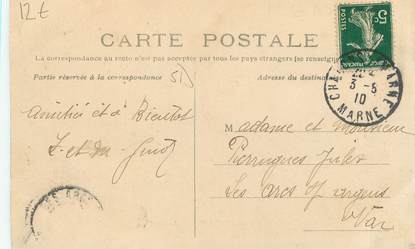 12€
CARTE POSTALE
La correspondance au recto n'est pas acceptée par tous les pays étrangers (se renseigner
Partie réservée à la correspondance
Adresse du destinat
5c
POSTES
3-5
10
MARNE
Amitiés et à Bientôt
Madame et Monsieur
Pierrugues Jules
Les Arcs s/ argens
Var